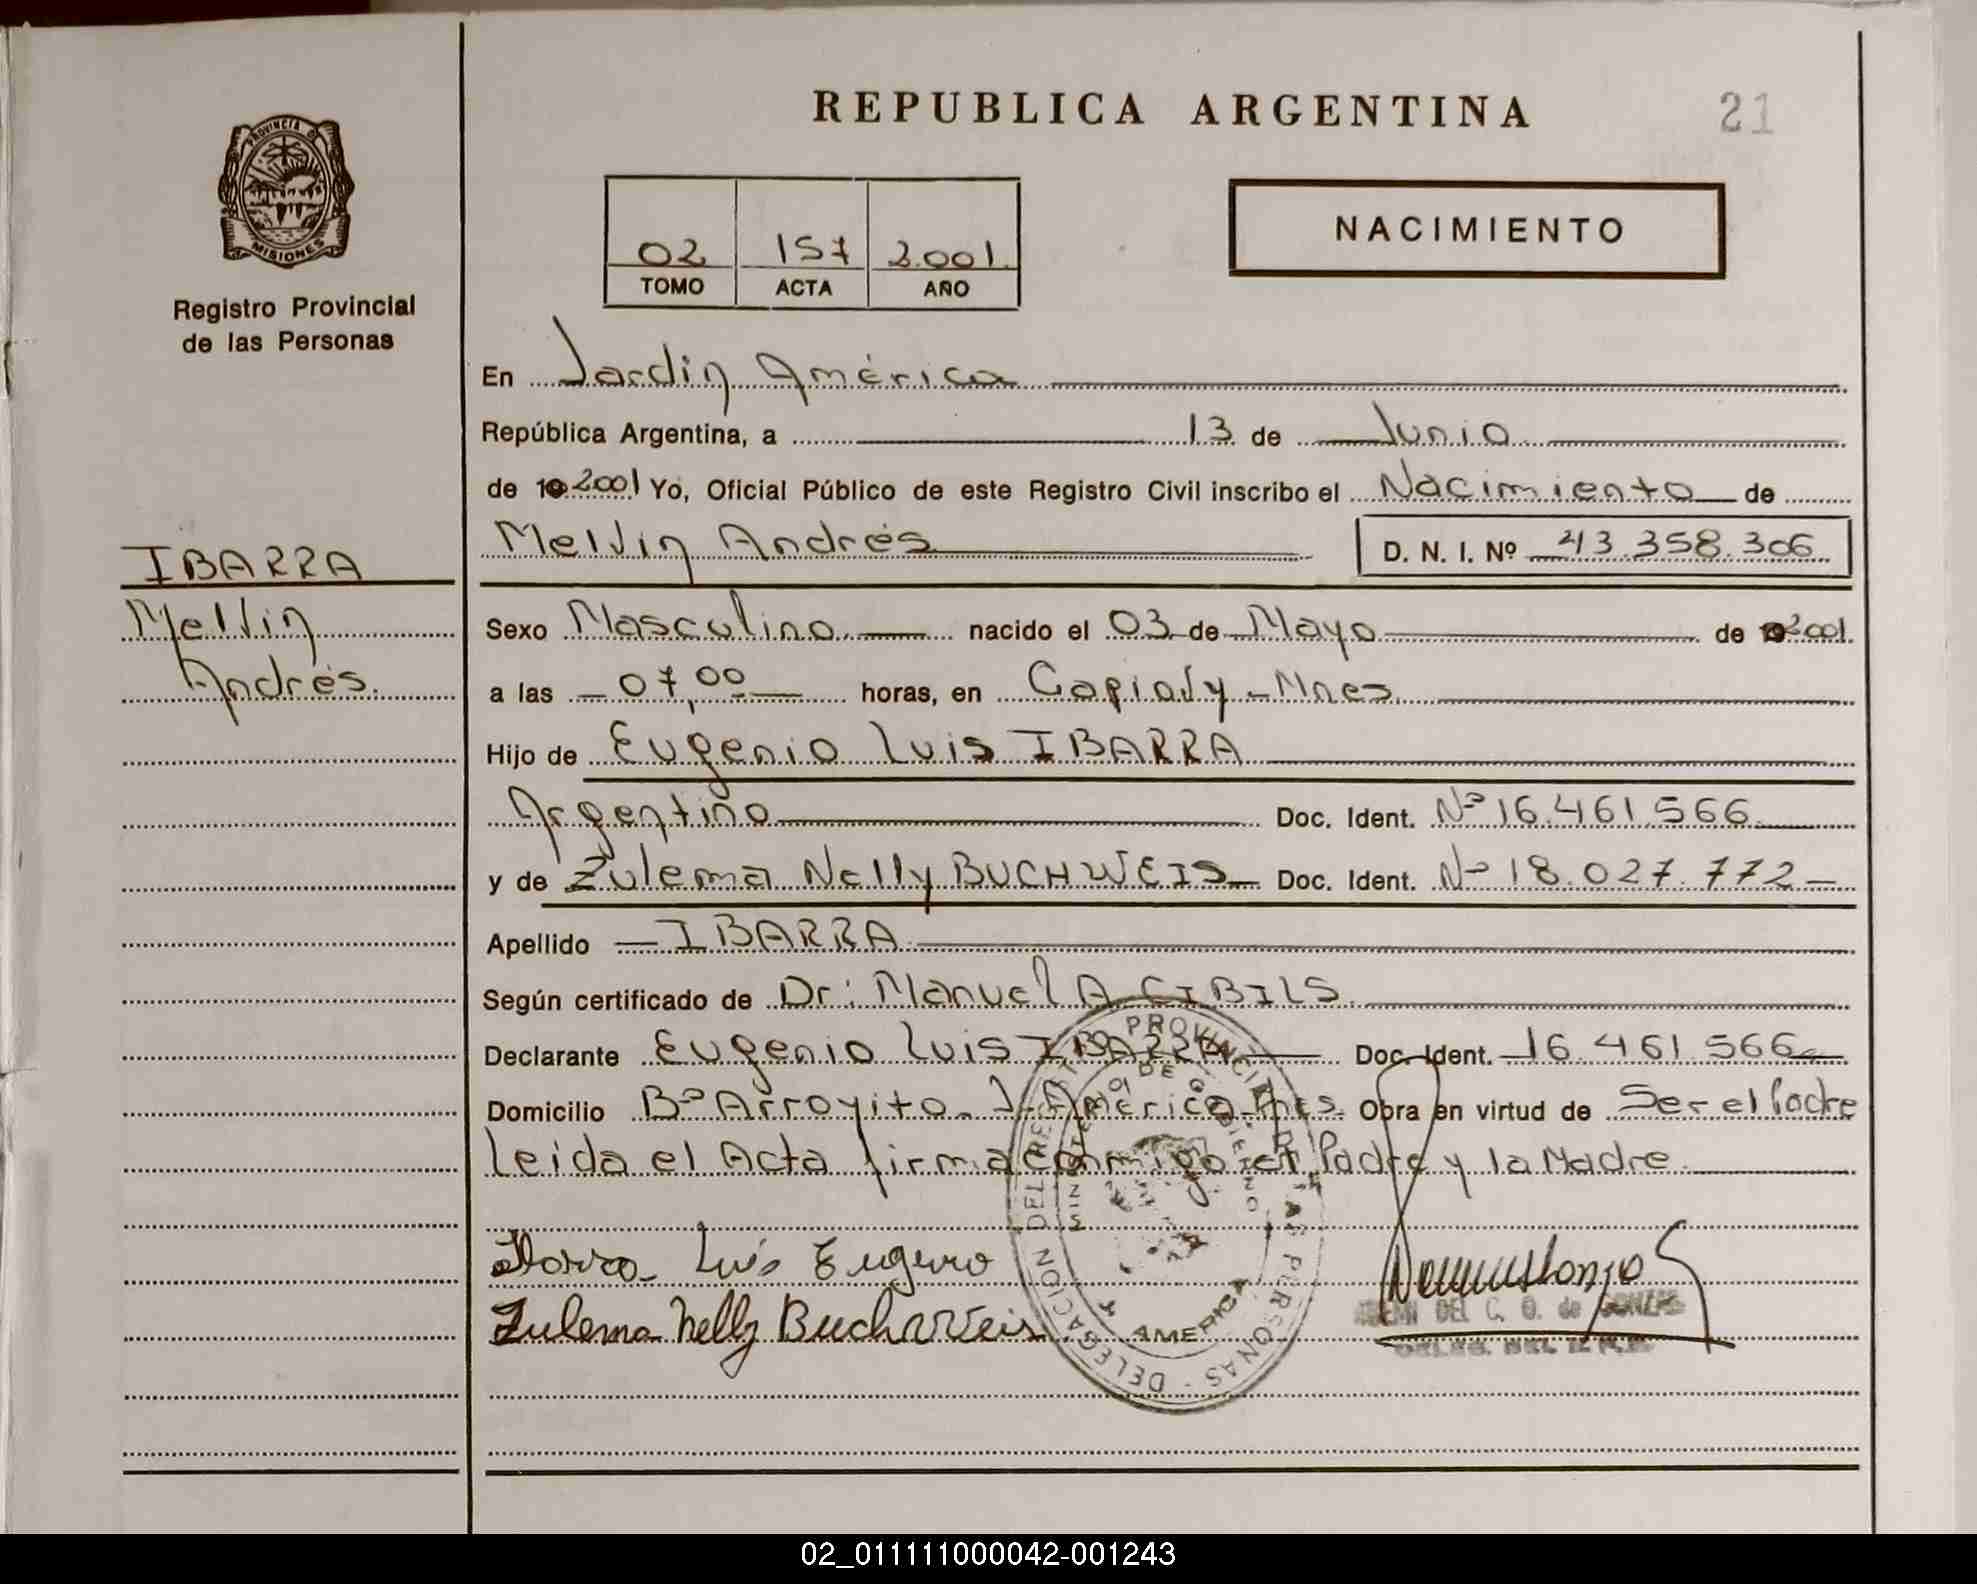 REPUBLICA ARGENTINA
21
PROVINCIA D
MISIONES
Registro Provincial
de las Personas
02 157 2.001
TOMO ACTA AÑO
NACIMIENTO
En Jardin América
República Argentina, a 13 de Junio
de 19 2001 Yo, Oficial Público de este Registro Civil inscribo el Nacimiento de
Melvin Andrés D. N. I. Nº 43.358.306
IBARRA
Melvin
Andrés
Sexo Masculino nacido el 03 de Mayo de 19 2001
a las 07,00 horas, en Capioví - Mnes
Hijo de Eugenio Luis IBARRA
Argentino Doc. Ident. Nº 16.461.566
y de Zulema Nelly BUCHWEIS Doc. Ident. Nº 18.027.772
Apellido IBARRA
Según certificado de Dr: Manuel A CIBILS
Declarante Eugenio Luis IBARRA Doc. Ident. 16.461.566
Domicilio Bº Arroyito - J. América Mnes. Obra en virtud de Ser el Padre
Leida el Acta firma conmigo el Padre y la Madre
Ibarra Luis Eugenio
Zulema Nelly Buchweis
DEL C. O. de GONZAS
DELEGACION DEL REG. PROVINCIAL DE LAS PERSONAS
AMERICA
02_011111000042-001243